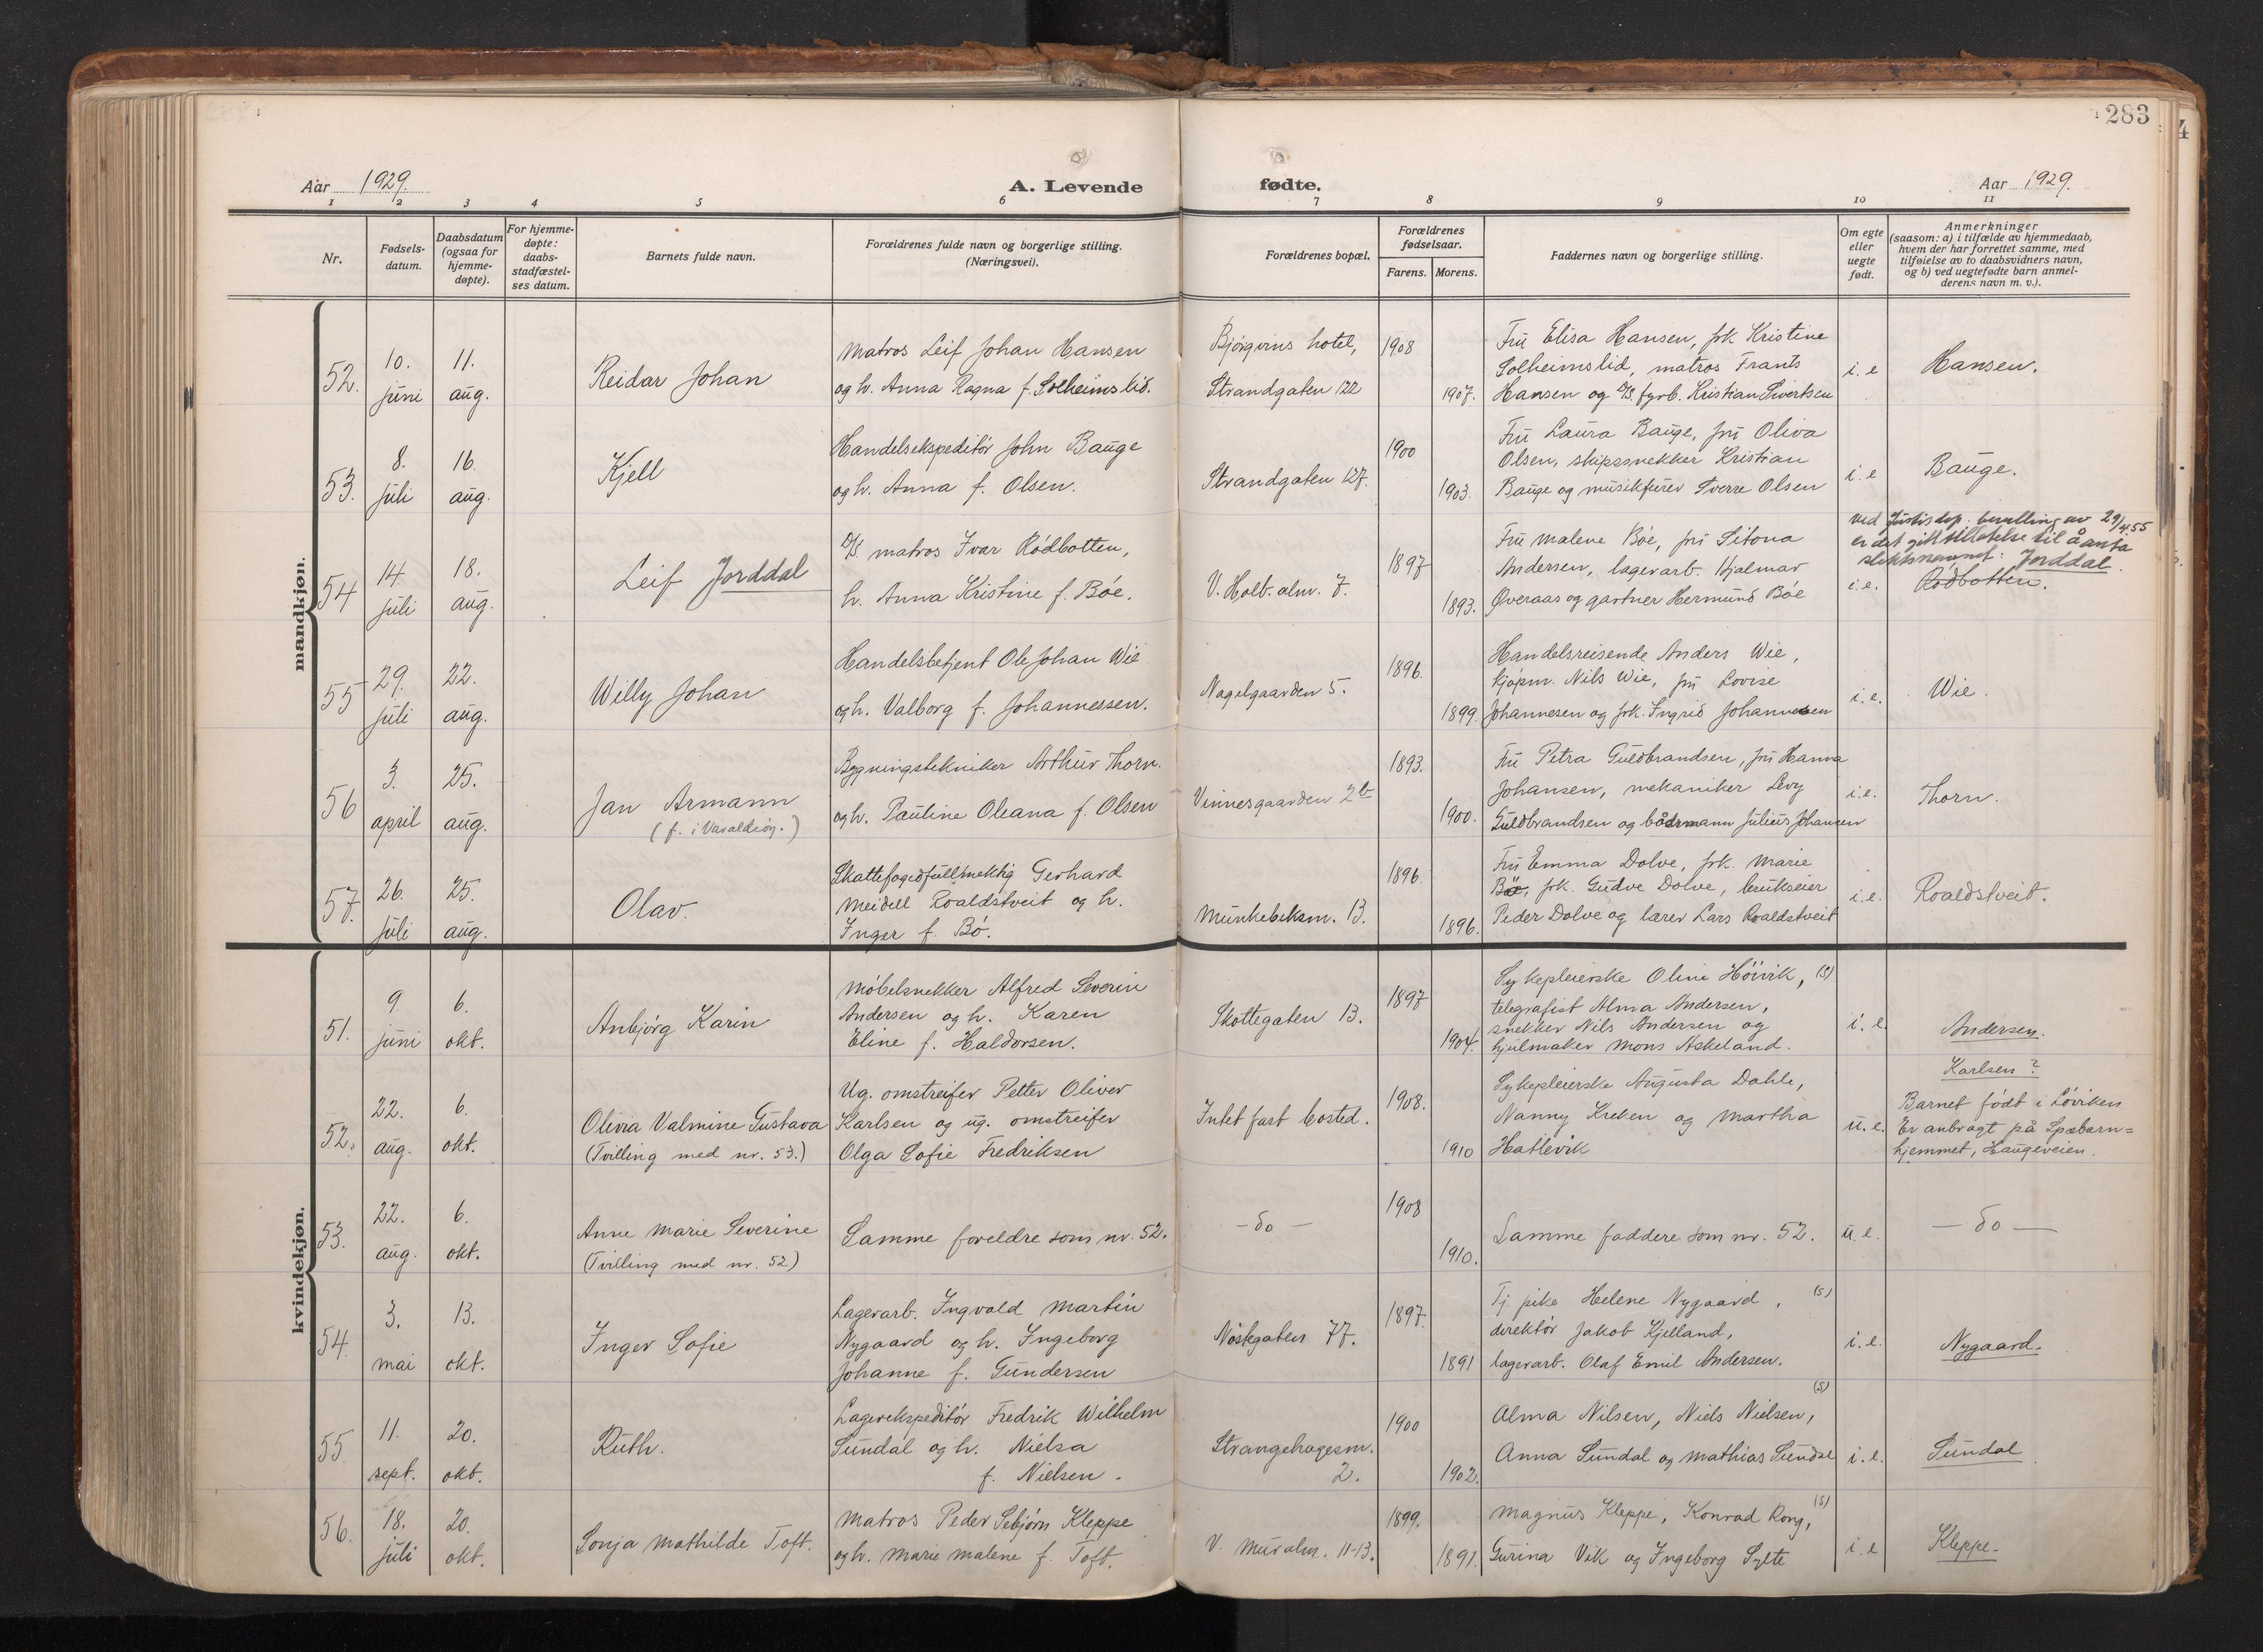 283
4
Aar 1929.
A. Levende
fødte.
Aar 1929.
1 2 3 4 5 6 7 8 9 10 11
Nr.
Fødsels-
datum.
Daabsdatum
(ogsaa for
hjemme-
døpte).
For hjemme-
døpte:
daabs-
stadfæstel-
ses datum.
Barnets fulde navn.
Forældrenes fulde navn og borgerlige stilling.
(Næringsvei).
Forældrenes bopæl.
Forældrenes
fødselsaar.
Farens. Morens.
Faddernes navn og borgerlige stilling.
Om egte
eller
uegte
født.
Anmerkninger
(saasom: a) i tilfælde av hjemmedaab,
hvem der har forrettet samme, med
tilføielse av to daabsvidners navn,
og b) ved uegtefødte barn anmel-
derens navn m. v.).
mandkjøn.
52.
10.
juni
11.
aug.
Reidar Johan
Matros Leif Johan Hansen
og h. Anna Ragna f. Solheimslid.
Bjørgvins hotel,
Strandgaten 122
1908
1907.
Fru Elisa Hansen, frk Kristine
Solheimslid, matros Frants
Hansen og D/S. fyrb. Kristian Sivertsen
i. e
Hansen.
53.
8.
juli
16.
aug.
Kjell
Handelsekspeditør John Bauge
og h. Anna f. Olsen.
Strandgaten 127.
1900
1903.
Fru Laura Bauge, fru Oliva
Olsen, skipssnekker Kristian
Bauge og musikfurer Sverre Olsen
i. e
Bauge.
54
14.
juli
18.
aug.
Leif Jorddal
D/S. matros Ivar Rødbotten,
h. Anna Kristine f. Bøe.
V. Holb. alm. 7.
1897
1893.
Fru Malene Bøe, fru Sitona
Andersen, lagerarb. Hjalmar
Øveraas og gartner Hermund Bøe
i. e.
ved Justisdep. bevilling av 29/4 55
er det gitt tillatelse til å anta
slektsnavnet: Jorddal.
Rødbotten.
55
29.
juli
22.
aug.
Willy Johan
Handelsbetjent Ole Johan Wie
og h. Valborg f. Johannessen.
Nagelgaarden 5.
1896.
1899.
Handelsreisende Anders Wie,
kjøpm. Nils Wie, fru Lovise
Johannesen og frk. Ingrid Johannesen
i. e.
Wie.
56
3.
april
25.
aug.
Jan Armann
(f. i Varaldsøy.)
Bygningstekniker Arthur Thorn.
og h. Pauline Oleana f. Olsen
Vinnesgaarden 2b
1893.
1900.
Fru Petra Guldbrandsen, fru Hanna
Johansen, mekaniker Levy
Guldbrandsen og bådsmann Julius Johansen
i. e.
Thorn.
57.
26.
juli
25.
aug.
Olav.
Skattefogedfullmektig Gerhard
Meidell Roaldstveit og h.
Inger f. Bø.
Munkebekkm. 13.
1896.
1896.
Fru Emma Dolve, frk. Marie
Bø, frk. Gudve Dolve, brukseier
Peder Dolve og lærer Lars Roaldstveit
i. e.
Roaldstveit.
kvindekjøn.
51.
9.
juni
6.
okt.
Anbjørg Karin
Møbelsnekker Alfred Severin
Andersen og h. Karen
Eline f. Haldorsen.
Skottegaten 13.
1897
1904.
Sykepleierske Oline Høivik, (S)
telegrafist Alma Andersen,
snekker Nils Andersen og
hjulmaker Mons Askeland.
i. e.
Andersen.
52.
22.
aug.
6.
okt.
Olivia Valmine Gustava
(Tvilling med nr. 53.)
Ug. omstreifer Petter Oliver
Karlsen og ug. omstreifer
Olga Sofie Fredriksen
Intet fast bosted.
1908.
1910
Sykepleierske Augusta Dahle,
Nanny Kreken og Martha
Hatlevik
u. e.
Karlsen?
Barnet født i Løviken
Er anbragt på Spæbarn=
hjemmet, Haugeveien.
53.
22.
aug.
6.
okt.
Anne Marie Severine
(Tvilling med nr. 52)
Samme foreldre som nr. 52.
- do -
1908
1910.
Samme faddere som nr. 52.
u. e.
- do -
54.
3.
mai
13.
okt.
Inger Sofie
Lagerarb. Ingvald Martin
Nygaard og h. Ingeborg
Johanne f. Gundersen
Nøstegaten 77.
1897.
1891
Tj. pike Helene Nygaard, (S)
direktør Jakob Kjelland,
lagerarb. Olaf Emil Andersen.
i. e.
Nygaard.
55
11.
sept.
20.
okt.
Ruth.
Lagerekspeditør Fredrik Wilhelm
Sundal og h. Nielsa
f. Nielsen.
Strangehagesm.
2.
1900
1902.
(S)
Alma Nilsen, Niels Nielsen,
Anna Sundal og Mathias Sundal
i. e.
Sundal
56.
18.
juli
20.
okt.
Sonja Mathilde Toft.
Matros Peder Sebjørn Kleppe
og h. Marie Malene f. Toft.
V. Muralm. 11-13.
1899.
1891.
Magnus Kleppe, Konrad Rong, (S)
Gurina Vik og Ingeborg Sylte
i. e
Kleppe.